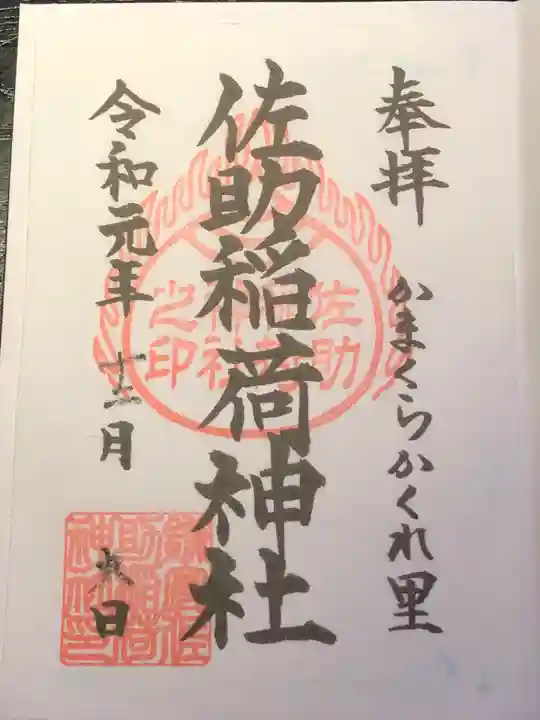 奉拝
かまくらかくれ里
佐助稲荷神社
令和元年 十二月 日
佐助稲荷神社之印